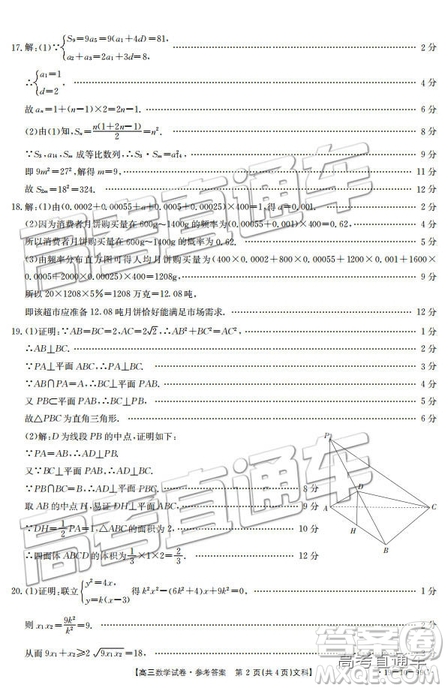 17.解:(1)∵{S₉=9a₅=9(a₁+4d)=81, a₂+a₃=2a₁+3d=8, 2分
∴{a₁=1 d=2. 4分
故aₙ=1+(n-1)×2=2n-1. 6分
(2)由(1)知,Sₙ=n(1+2n-1)/2=n². 8分
∵S₃,a₁₄,Sₘ成等比数列,∴S₃·Sₘ=a₁₄² 9分
即9m²=27²,解得m=9, 11分
故S₂ₘ=18²=324. 12分
18.解:(1)由(0.0002+0.00055+a+0.0005+0.00025)×400=1,得a=0.001. 2分
(2)因为消费者月饼购买量在600g~1400g的频率为 ×400=0.62, 4分
所以消费者月饼购买量在600g~1400g的概率为0.62. 5分
(3)由频率分布直方图可得人均月饼购买量为(400×0.0002+800×0.00055+1200×0.001+1600×
0.0005+2000×0.00025)×400=1208g, 9分
所以20×1208×5%=1208万克=12.08吨,
即该超市应准备12.08吨月饼恰好能满足市场需求. 12分
19.(1)证明:∵AB=BC=2,AC=2√2,∴AB²+BC²=AC², 1分
∴AB⊥BC. 2分
∵PA⊥平面ABC,∴PA⊥BC. 3分
∵AB∩PA=A,∴BC⊥平面PAB. 4分
又PB⊂平面PAB,∴BC⊥PB, 5分
故△PBC为直角三角形. 6分
(2)解:D为线段PB的中点,证明如下:
∵PA=AB,∴AD⊥PB.
又∵BC⊥平面PAB,∴BC⊥AD.
∵PB∩BC=B,∴AD⊥平面PBC. 8分
取AB的中点H,易证DH⊥平面ABC. 9分
∵DH=1/2PA=1,△ABC的面积为2, 10分
∴四面体ABCD的体积为1/3×1×2=2/3. 12分
P
D
A
C
H
B
20.(1)证明:联立{y²=4x, y=k(x-3) 得k²x²-(6k²+4)x+9k²=0, 1分
则x₁x₂=9k²/k²=9, 2分
从而9x₁+x₂≥2√(9x₁x₂)=18,
【高三数学试卷·参考答案 第2页(共4页)文科】
高考直通车
高考直通车
高考直通车